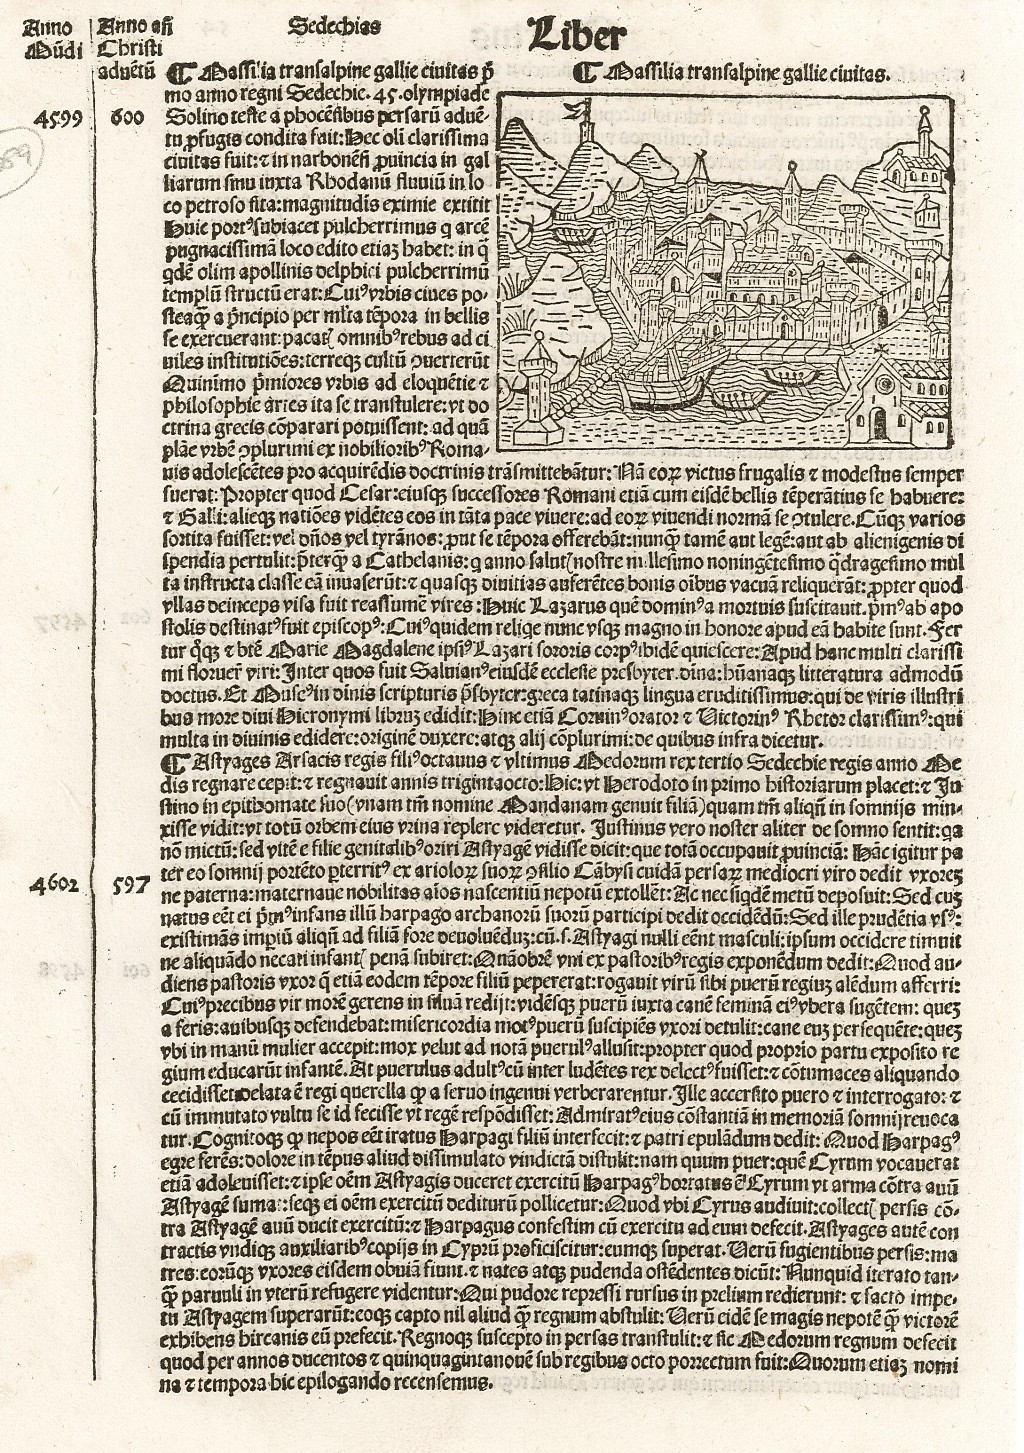 Anno Mũdi
Anno añ Christi aduẽtũ
Sedechias
Liber
4599 600
4602 597
¶ Massilia transalpine gallie ciuitas.
¶ Massilia transalpine gallie ciuitas p̃
mo anno regni Sedechie. 45. olympiade
Solino teste a phocẽsibus persarũ aduẽ-
tu ꝓfugis condita fuit: Hec oli clarissima
ciuitas fuit: ⁊ in narbonẽsi ꝓuincia in gal
liarum sinu iuxta Rhodanũ fluuiũ in lo
co petroso sita: magnitudis eximie extitit
Huic portꝰ subiacet pulcherrimus q arcẽ
pugnacissimã loco edito etiaȝ habet: in q̃
qdẽ olim apollinis delphici pulcherrimũ
templũ structũ erat: Cuiꝰ vrbis ciues po-
steaqꝫ a p̃ncipio per mlta tẽpora in bellis
se exercuerant: pacatꝭ omnibꝰ rebus ad ci
uiles institutiões: terreqꝫ cultũ ꝯuerterũt
Quinimo p̃miores vrbis ad eloquẽtie ⁊
philosophie artes ita se transtulere: vt do
ctrina grecis cõparari potuissent: ad quã
plãe vrbẽ ꝯplurimi ex nobilioribꝰ Roma-
nis adolescẽtes pro acquirẽdis doctrinis trãsmittebãtur: Nã eoꝝ victus frugalis ⁊ modestus semper
fuerat: Propter quod Cesar: eiusqꝫ successores Romani etiã cum eisdẽ bellis tẽperãtius se habuere:
⁊ Galli: alieqꝫ natiões vidẽtes eos in tãta pace viuere: ad eoꝝ viuendi normã se ꝯtulere. Cũqꝫ varios
sortita fuisset: vel dños vel tyrãnos: ꝓut se tẽpora offerebãt: nunqꝫ tamẽ aut legẽ: aut ab alienigenis di
spendia pertulit: p̃terqꝫ a Cathelanis: q anno salutꝭ nostre millesimo noningẽtesimo q̃dragesimo mul
ta instructa classe eã inuaserũt: ⁊ quasqꝫ diuitias auferẽtes bonis oĩbus vacuã reliquerãt: ꝓpter quod
vllas deinceps visa fuit reassumẽ vires: Huic Lazarus quẽ dominꝰ a mortuis suscitauit. p̃mꝰ ab apo
stolis destinatꝰ fuit episcopꝰ: Cuiꝰ quidem reliqe nunc vsqꝫ magno in honore apud eã habite sunt. Fer
tur q̃qꝫ ⁊ btẽ Marie Magdalene ipsiꝰ Lazari sororis corpꝰ ibidẽ quiescere: Apud hanc multi clarissi
mi floruer̃ viri: Inter quos fuit Saluianꝰ eiusdẽ ecclesie presbyter. diña: hũanaqꝫ litteratura admodũ
doctus. Et Museꝰ in diñis scripturis p̃sbyter: greca tatinaqꝫ lingua eruditissimus: qui de viris illustri
bus more diui Hieronymi libruȝ edidit: Hinc etiã Coruinꝰ orator ⁊ Victorinꝰ Rhetor clarissimꝰ: qui
multa in diuinis edidere: originẽ duxere: atqꝫ alij cõplurimi: de quibus infra dicetur.
¶ Astyages Arsacis regis filiꝰ octauus ⁊ vltimus Medorum rex tertio Sedechie regis anno Me
dis regnare cepit: ⁊ regnauit annis trigintaocto: Hic: vt Herodoto in primo historiarum placet: ⁊ Iu
stino in epithomate suo (vnam tm̃ nomine Mandanam genuit filiã) quam tm̃ aliqñ in somnijs min-
xisse vidit: vt totũ orbem eius vrina replere videretur. Justinus vero noster aliter de somno sentit: qa
nõ mictũ: sed vitẽ e filie genitalibꝰ oriri Astyagẽ vidisse dicit: que totã occupauit ꝓuinciã: Hac igitur pa
ter eo somnij portẽto p̃territꝰ ex arioloꝝ suoꝝ ꝯsilio Cãbysi cuidã persaꝝ mediocri viro dedit vxoreȝ
ne paterna: maternaue nobilitas aĩos nascentiũ nepotũ extollẽt: Ac nec siqdẽ metũ deposuit: Sed cuȝ
natus eẽt ei p̃mꝰ infans illũ harpago archanorũ suorũ participi dedit occidẽdũ: Sed ille prudẽtia vsꝰ:
existimãs impiũ aliqñ ad filiã fore deuoluẽduȝ: cũ. s. Astyagi nulli eẽnt masculi: ipsum occidere timuit
ne aliquãdo necati infantꝭ penã subiret: Quãobrẽ vni ex pastoribꝰ regis exponẽdum dedit: Quod au-
diens pastoris vxor q̃ etiã eodem tẽpore filiũ pepererat: rogauit virũ sibi puerũ regiuȝ alẽdum afferri:
Cuiꝰ precibus vir morẽ gerens in siluã redijt: vidẽsqꝫ puerũ iuxta canẽ feminã eiꝰ vbera sugẽtem: queȝ
a feris: auibusqꝫ defendebat: misericordia motꝰ puerũ suscipiẽs vxori detulit: cane euȝ persequẽte: queȝ
vbi in manũ mulier accepit: mox velut ad notã puerulꝰ allusit: propter quod proprio partu exposito re
gium educarũt infantẽ. At puerulus adultꝰ cũ inter ludẽtes rex delectꝰ fuisset: ⁊ cõtumaces aliquando
cecidisset: delata ẽ regi querella ꝙ a seruo ingenui verberarentur. Ille accersito puero ⁊ interrogato: ⁊
cũ immutato vultu se id fecisse vt regẽ respõdisset: Admiratꝰ eius cõstantiã in memoriã somnij reuoca
tur. Cognitoqꝫ ꝙ nepos eẽt iratus Harpagi filiũ interfecit: ⁊ patri epulãdum dedit: Quod Harpagꝰ
egre ferẽs: dolore in tẽpus aliud dissimulato vindictã distulit: nam quum puer: quẽ Cyrum vocauerat
etiã adoleuisset: ⁊ ipse oẽm Astyagis duceret exercitũ Harpagꝰ hortatus ẽ Cyrum vt arma cõtra auũ
Astyagẽ suma: seqꝫ ei oẽm exercitũ dediturũ pollicetur: Quod vbi Cyrus audiuit: collectꝭ persis cõ-
tra Astyagẽ auũ ducit exercitũ: ⁊ Harpagus confestim cũ exercitu ad eum defecit. Astyages autẽ con
tractis vndiqꝫ auxiliaribꝰ copijs in Cyprũ proficiscitur: eumqꝫ superat. Verũ fugientibus persis: ma
tres: eorũqꝫ vxores eisdem obuiã fiunt. ⁊ nates atqꝫ pudenda ostẽdentes dicũt: Nunquid iterato tan-
qꝫ paruuli in vterũ refugere videntur: Qui pudore repressi rursus in prelium redierunt: ⁊ facto impe-
tu Astyagem superarũt: eoqꝫ capto nil aliud qꝫ regnum abstulit: Verũ eidẽ se magis nepotẽ qꝫ victorẽ
exhibens hircanis eũ prefecit. Regnoqꝫ suscepto in persas transtulit: ⁊ sic Medorum regnum defecit
quod per annos ducentos ⁊ quinquagintanouẽ sub regibus octo porrectum fuit: Quorum etiaȝ nomi
na ⁊ tempora hic epilogando recensemus.